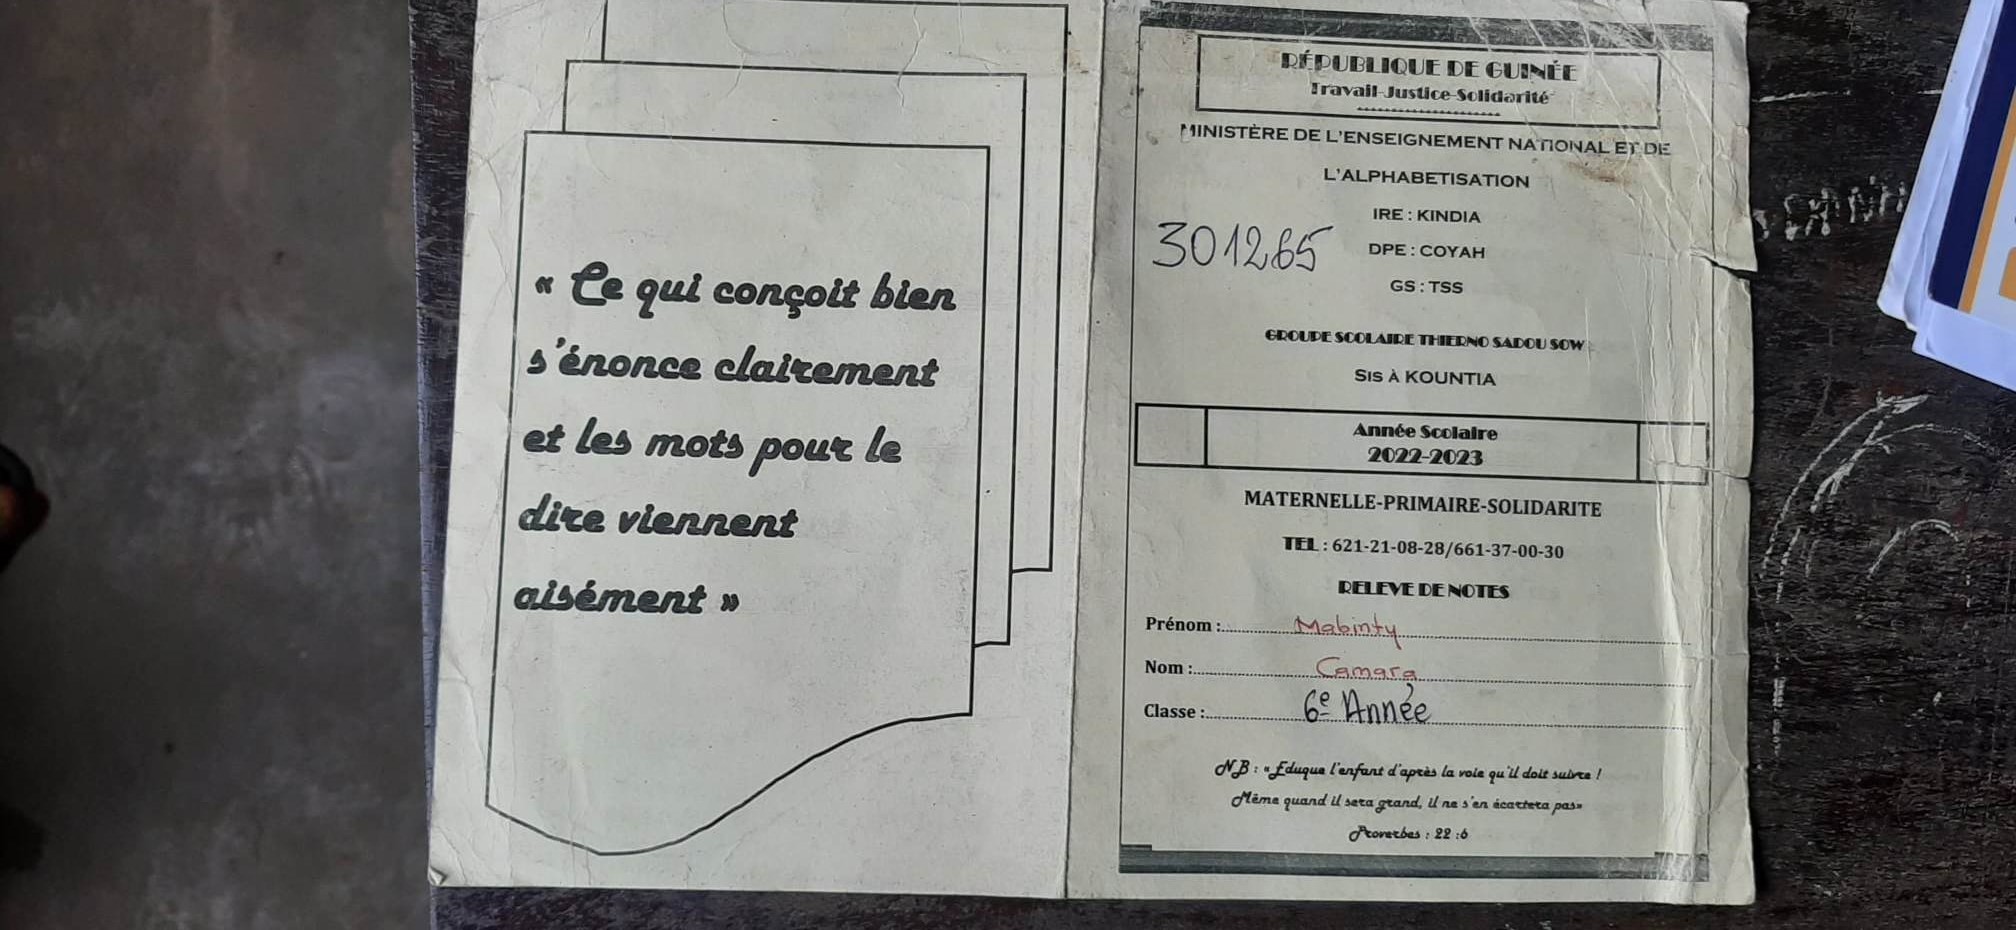 « Ce qui conçoit bien
s'énonce clairement
et les mots pour le
dire viennent
aisément »
RÉPUBLIQUE DE GUINÉE
Travail-Justice-Solidarité
MINISTÈRE DE L'ENSEIGNEMENT NATIONAL ET DE
L'ALPHABETISATION
IRE : KINDIA
301265
DPE : COYAH
GS : TSS
GROUPE SCOLAIRE THIERNO SADOU SOW
SIS À KOUNTIA
Année Scolaire
2022-2023
MATERNELLE-PRIMAIRE-SOLIDARITE
TEL : 621-21-08-28/661-37-00-30
RELEVE DE NOTES
Prénom : Mabinty
Nom : Camara
Classe : 6e Année
NB : « Eduque l'enfant d'après la voie qu'il doit suivre !
Même quand il sera grand, il ne s'en écartera pas»
Proverbes : 22 :6